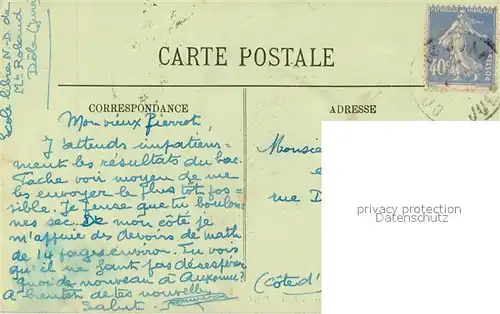 École libre N-D. de
Mt Roland
Dôle (Jura)
CARTE POSTALE
40c
POSTES
CORRESPONDANCE
ADRESSE
Mon vieux Pierrot,
J'attends impatiem-
ment les résultats du bac.
Tache voir moyen de me
les envoyer le plus tôt pos-
sible. Je pense que tu boulon-
nes sec. De mon côté je
m'appuie des devoirs de math
de 14 pages environ. Tu vois
qu'il ne faut pas désespérer
quoi de nouveau à Auxonne?
A bientôt de tes nouvelles
Salut.
Monsie
rue D
(Côte d'
privacy protection
www.delcampe.net